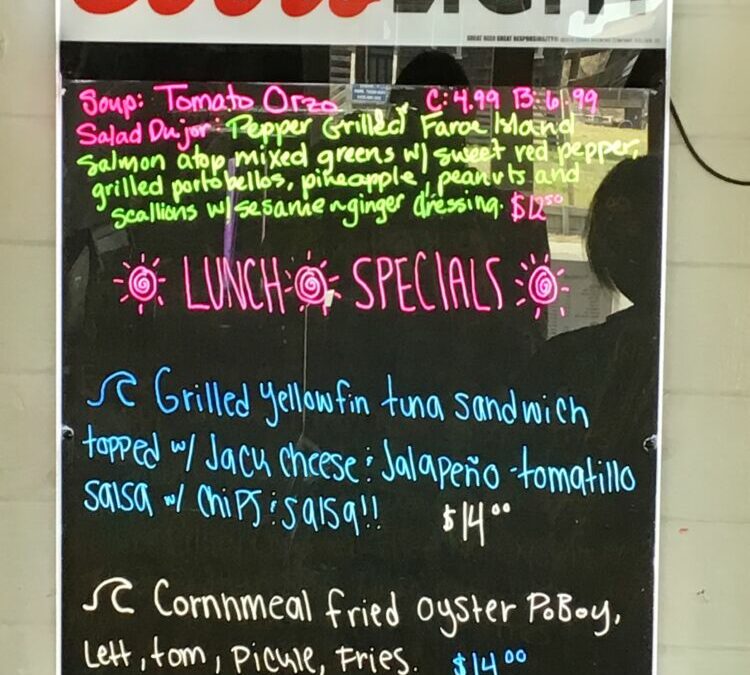 Soup: Tomato Orzo C: 4.99 B: 6.99
Salad Dujor: Pepper Grilled Faroe Island
Salmon atop mixed greens w/ sweet red pepper,
grilled portobellos, pineapple, peanuts and
scallions w/ sesame-ginger dressing. $12⁵⁰
LUNCH SPECIALS
Grilled yellowfin tuna sandwich
topped w/ Jack cheese & Jalapeño-tomatillo
salsa w/ chips & salsa!!
$14⁰⁰
Cornhmeal fried oyster PoBoy,
Lett, tom, Pickle, Fries. $14⁰⁰